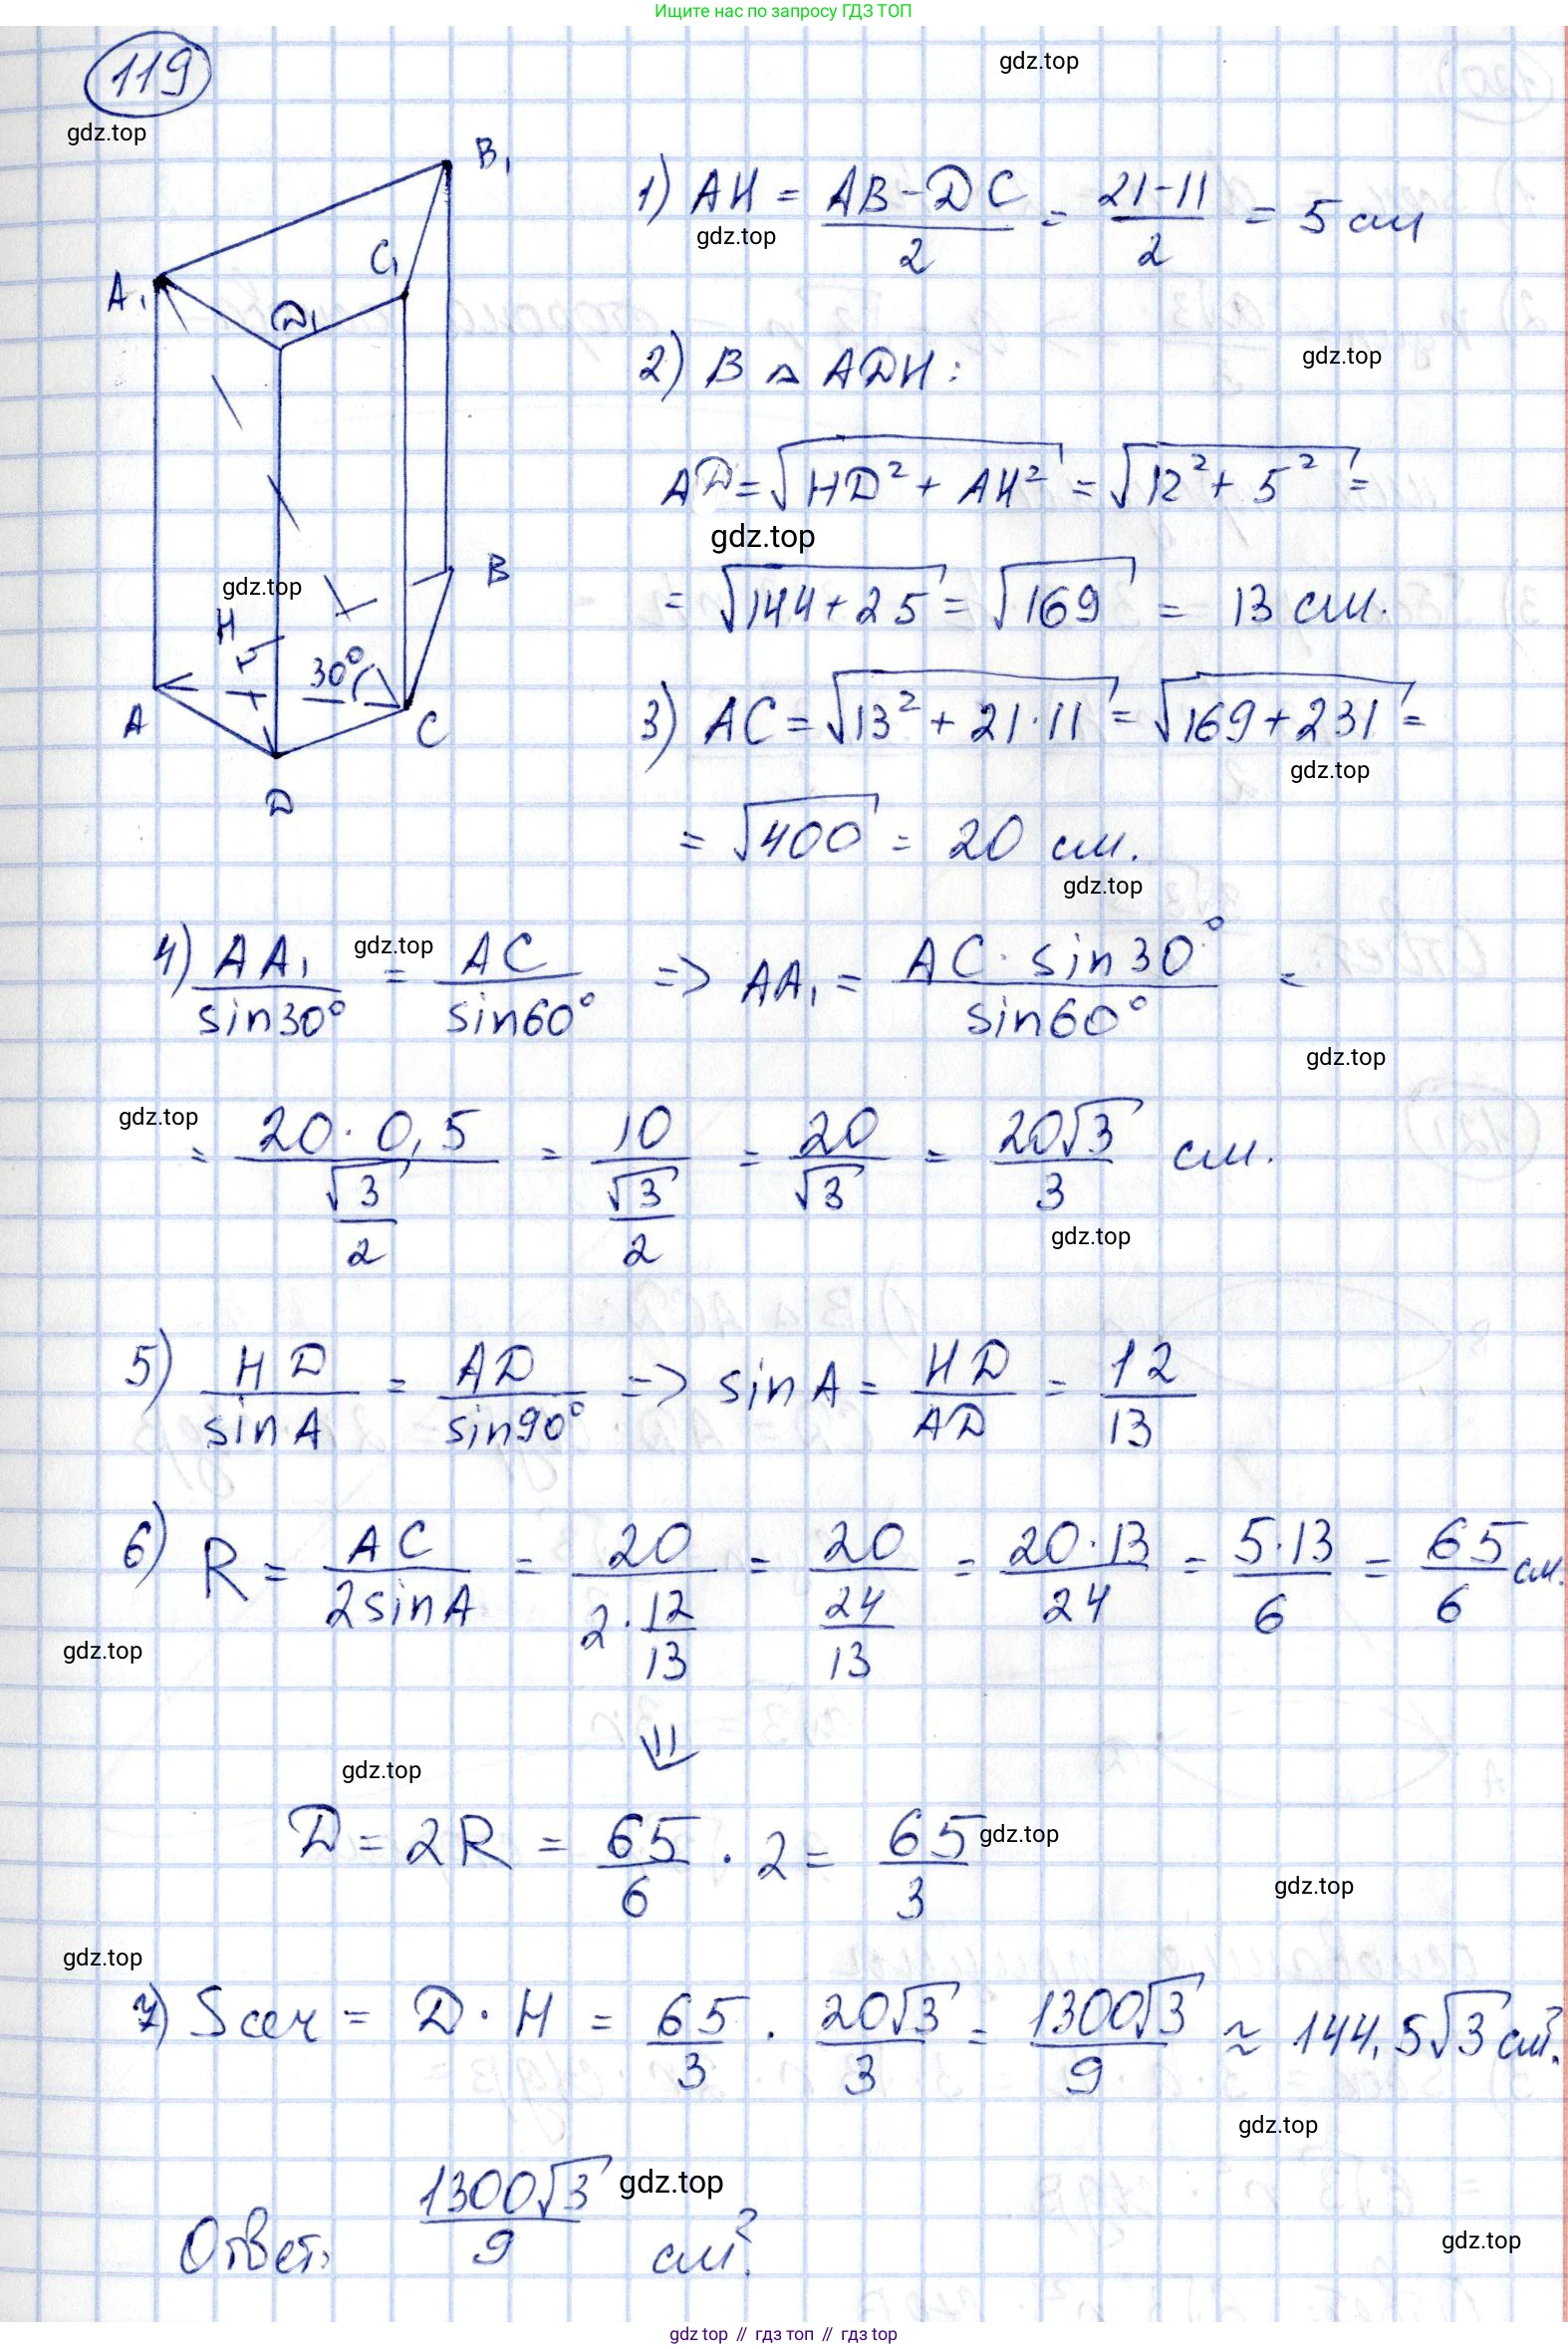 Ищите нас по запросу ГДЗ ТОП
119
gdz.top
gdz.top
B₁
A₁
C₁
D₁
B
H
30°
A
C
D
gdz.top
1) AH = (AB-DC)/2 = (21-11)/2 = 5 см
gdz.top
2) В △ ADH:
gdz.top
AD = √(HD² + AH²) = √(12² + 5²) =
gdz.top
= √(144+25) = √169 = 13 см.
3) AC = √(13² + 21·11) = √(169+231) =
gdz.top
= √400 = 20 см.
gdz.top
4) AA₁/sin30° = AC/sin60° => AA₁ = (AC · sin30°)/sin60° =
gdz.top
gdz.top
gdz.top
= (20·0,5)/(√3/2) = 10/(√3/2) = 20/√3 = 20√3/3 см.
gdz.top
5) HD/sinA = AD/sin90° => sinA = HD/AD = 12/13
6) R = AC/(2sinA) = 20/(2·12/13) = 20/(24/13) = (20·13)/24 = (5·13)/6 = 65/6 см.
gdz.top
⇓
gdz.top
D = 2R = 65/6 · 2 = 65/3
gdz.top
gdz.top
gdz.top
7) Sсеч = D·H = 65/3 · 20√3/3 = 1300√3/9 ≈ 144,5√3 см².
gdz.top
Ответ: 1300√3/9 см².
gdz.top
gdz.top
gdz.top // гдз топ // гдз top